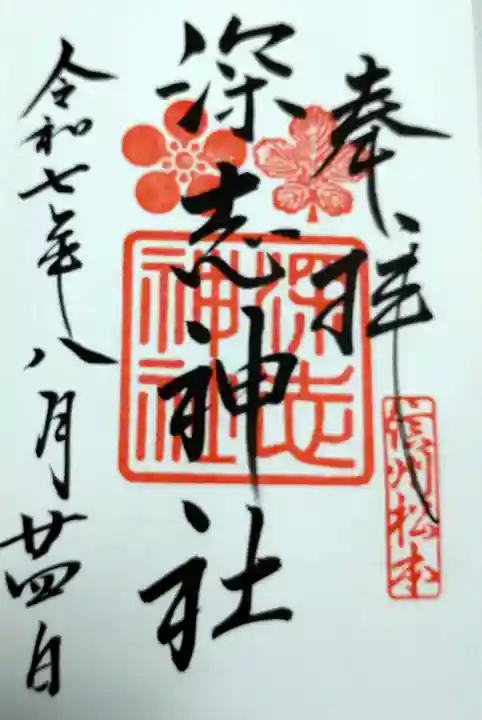 奉拝
信州松本
深志神社
深志神社
令和七年八月廿四日